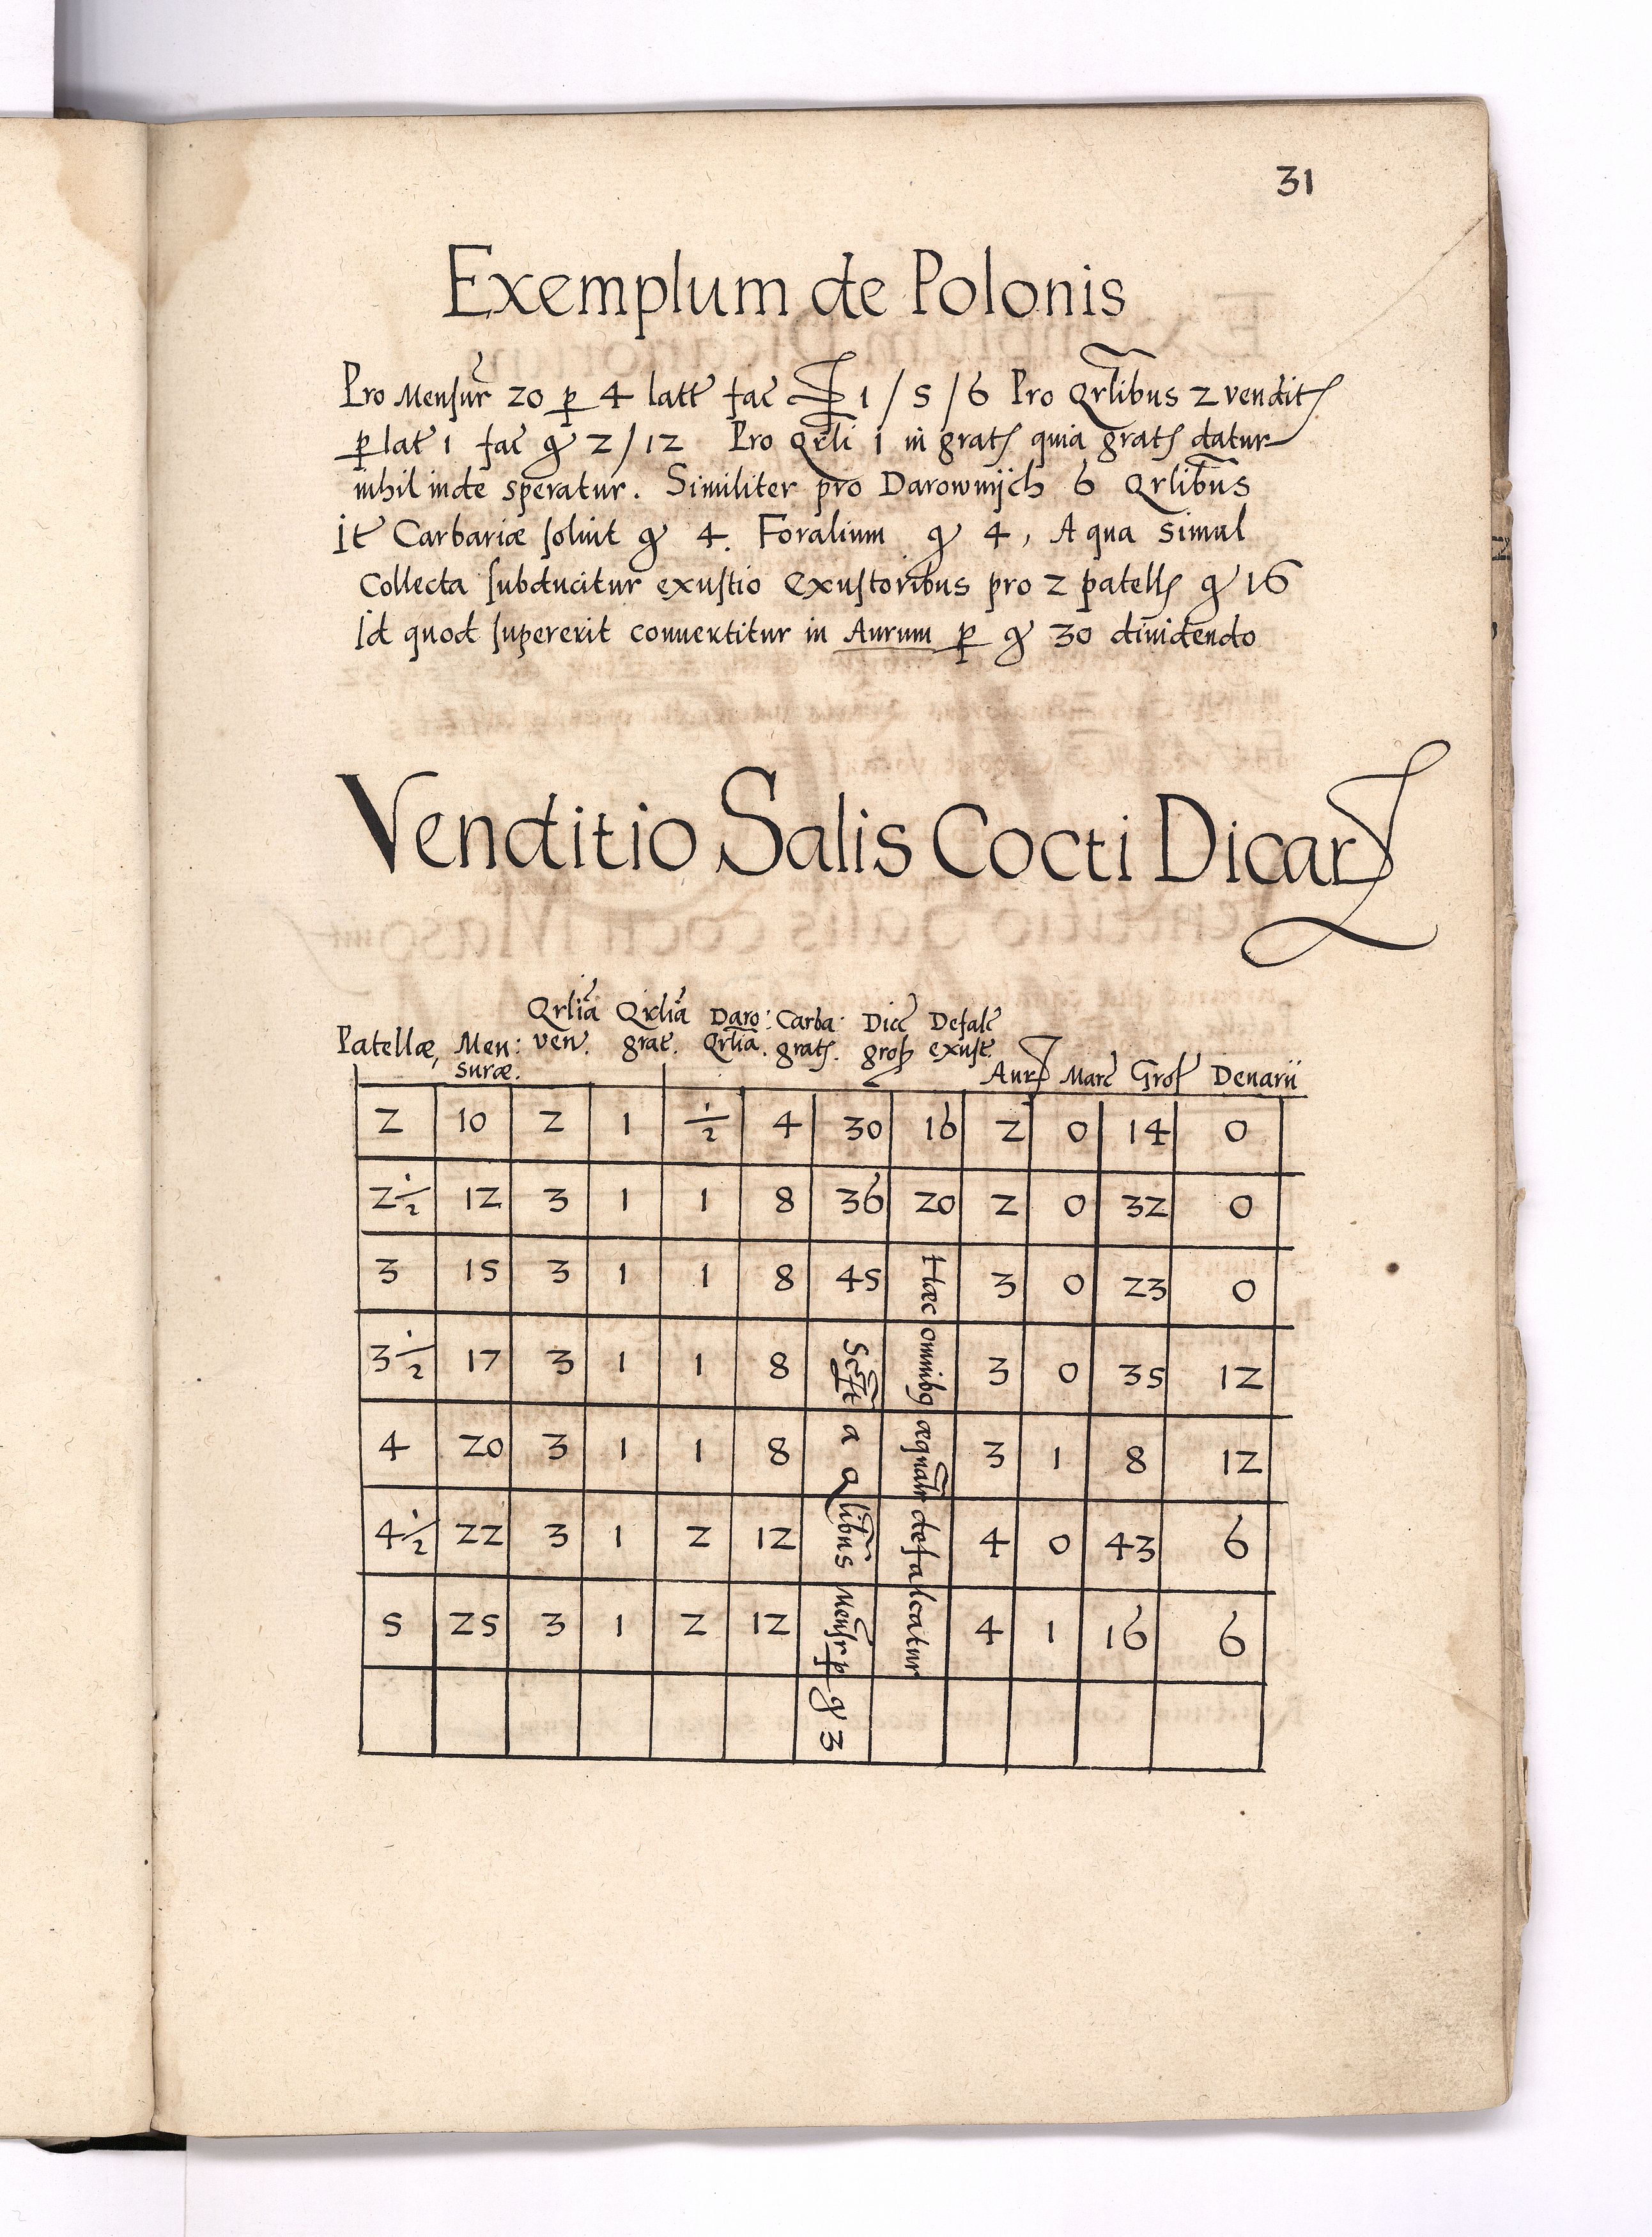 31
Exemplum de Polonis
Pro Mensur 20 p 4 latt fac 1 / 5 / 6 Pro Qrlibus 2 vendit
p lat 1 fac g 2 / 12 Pro Qrli 1 in grat quia grat datur
nihil inde speratur. Similiter pro Darownijch 6 Qrlibus
It Carbariæ soluit g 4. Foralium g 4, A qua simul
Collecta subducitur exustio Exustoribus pro 2 patell g 16
Id quod supererit conuertitur in Aurum p g 30 diuidendo
Venditio Salis Cocti Dicar
Patellæ, Men: suræ. Qrlia ven. Qrlia grat. Daro: Qrlia. Carba: grat. Dic gross Defalc exust. Aur Marc Gros Denarii
2 10 2 1 1/2 4 30 16 2 0 14 0
2 1/2 12 3 1 1 8 36 20 2 0 32 0
3 15 3 1 1 8 45 3 0 23 0
3 1/2 17 3 1 1 8 3 0 35 12
4 20 3 1 1 8 3 1 8 12
4 1/2 22 3 1 2 12 4 0 43 6
5 25 3 1 2 12 4 1 16 6
a qlibus Mensr p g 3
Hæc omnibq æqualr defalcatur